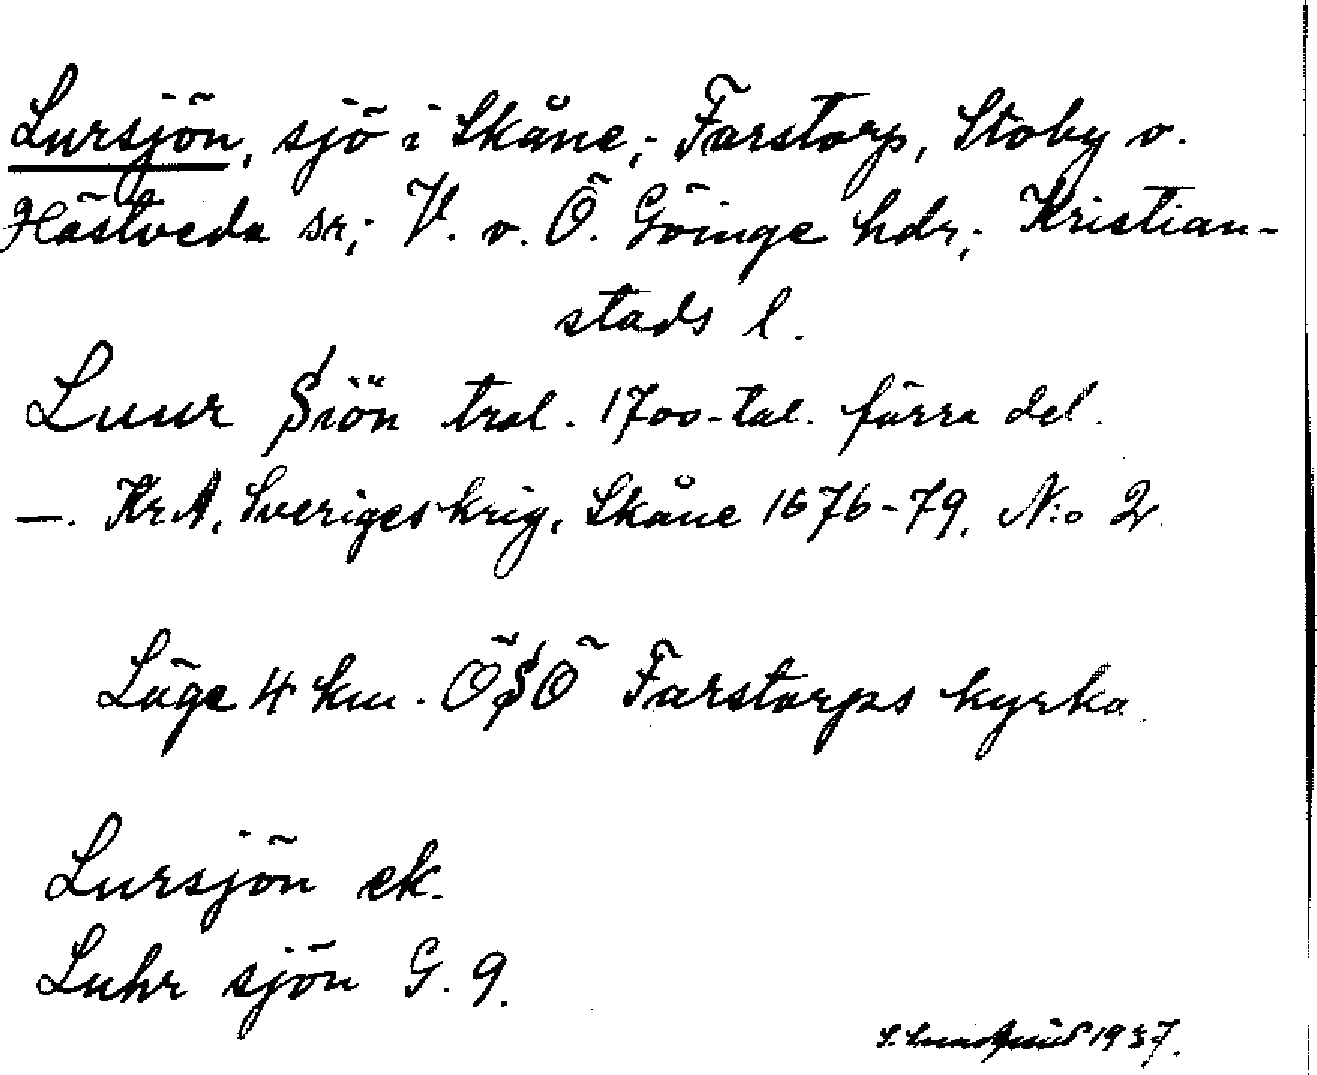 Lursjön, sjö i Skåne; Farstorp, Stoby o.
Hästveda sr; V. o. Ö. Göinge hdr; Kristian-
stads l.
Luur Siön tral. 1700-tal. förra del.
—. KrA, Sveriges krig, Skåne 1676-79. N:o 2
Läge 4 km. ÖSÖ Farstorps kyrka.
Lursjön ek.
Luhr sjön G. 9.
S. Lundquist 1937.